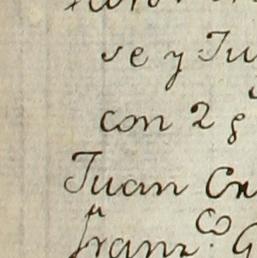 se y Ju
con 2 g
Juan Cr
Franc.co G